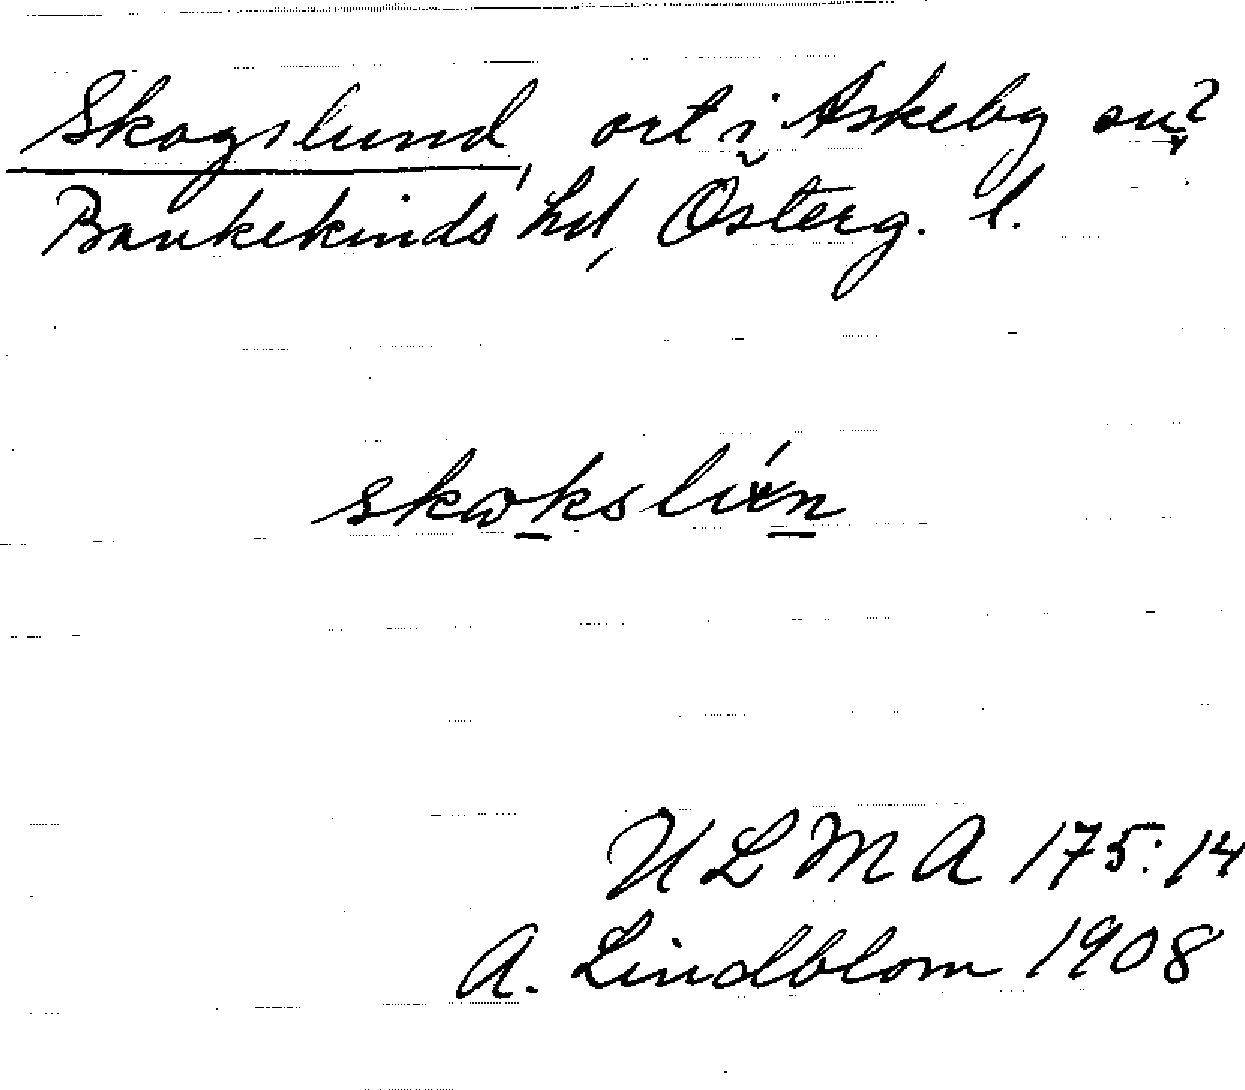 Skogslund, ort i Askeby sn?
Bankekinds hd, Österg. l.
ULMA 175:14
A. Lindblom 1908